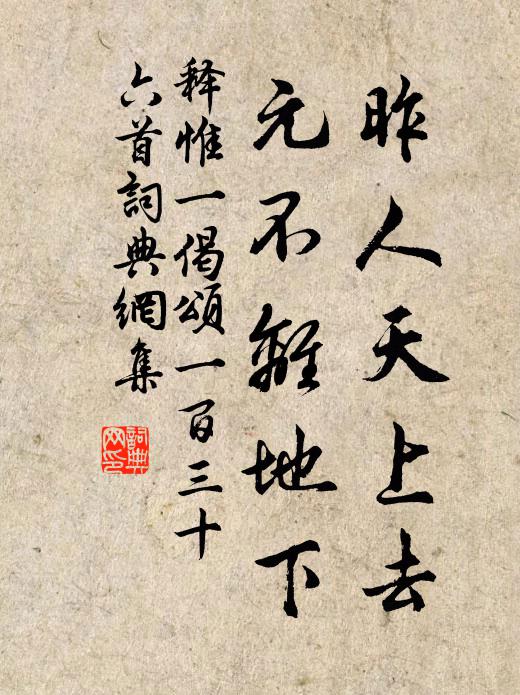 昨人天上去
元不離地下
释惟一偈頌一百三十
六首詞典網集
詞典
网印